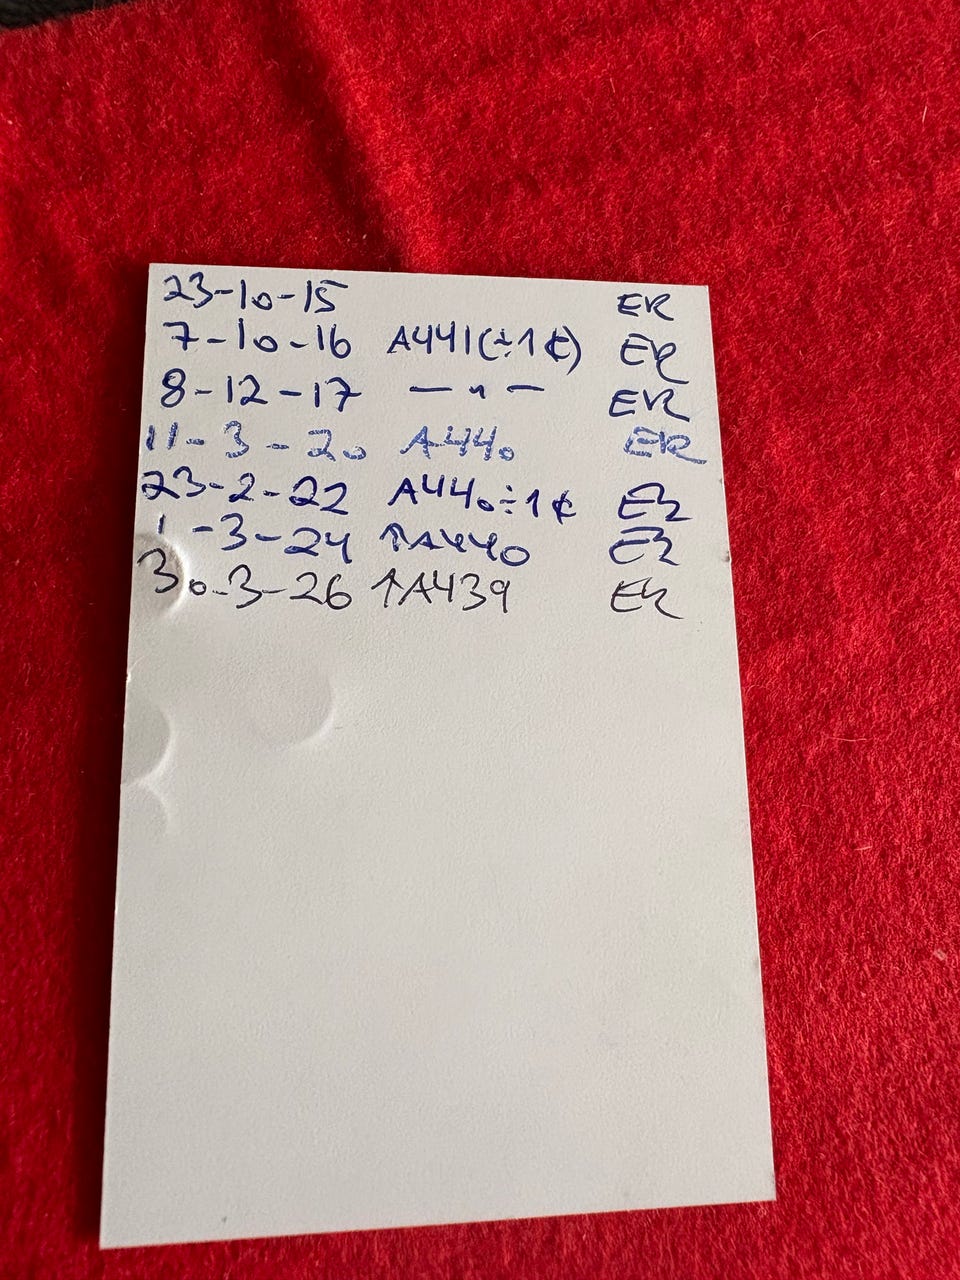 23-10-15 ER
7-10-16 A441(÷1¢) ER
8-12-17 — " — ER
11-3-20 A440 ER
23-2-22 A440÷1¢ ER
1-3-24 ↑A440 ER
30-3-26 ↑A439 ER